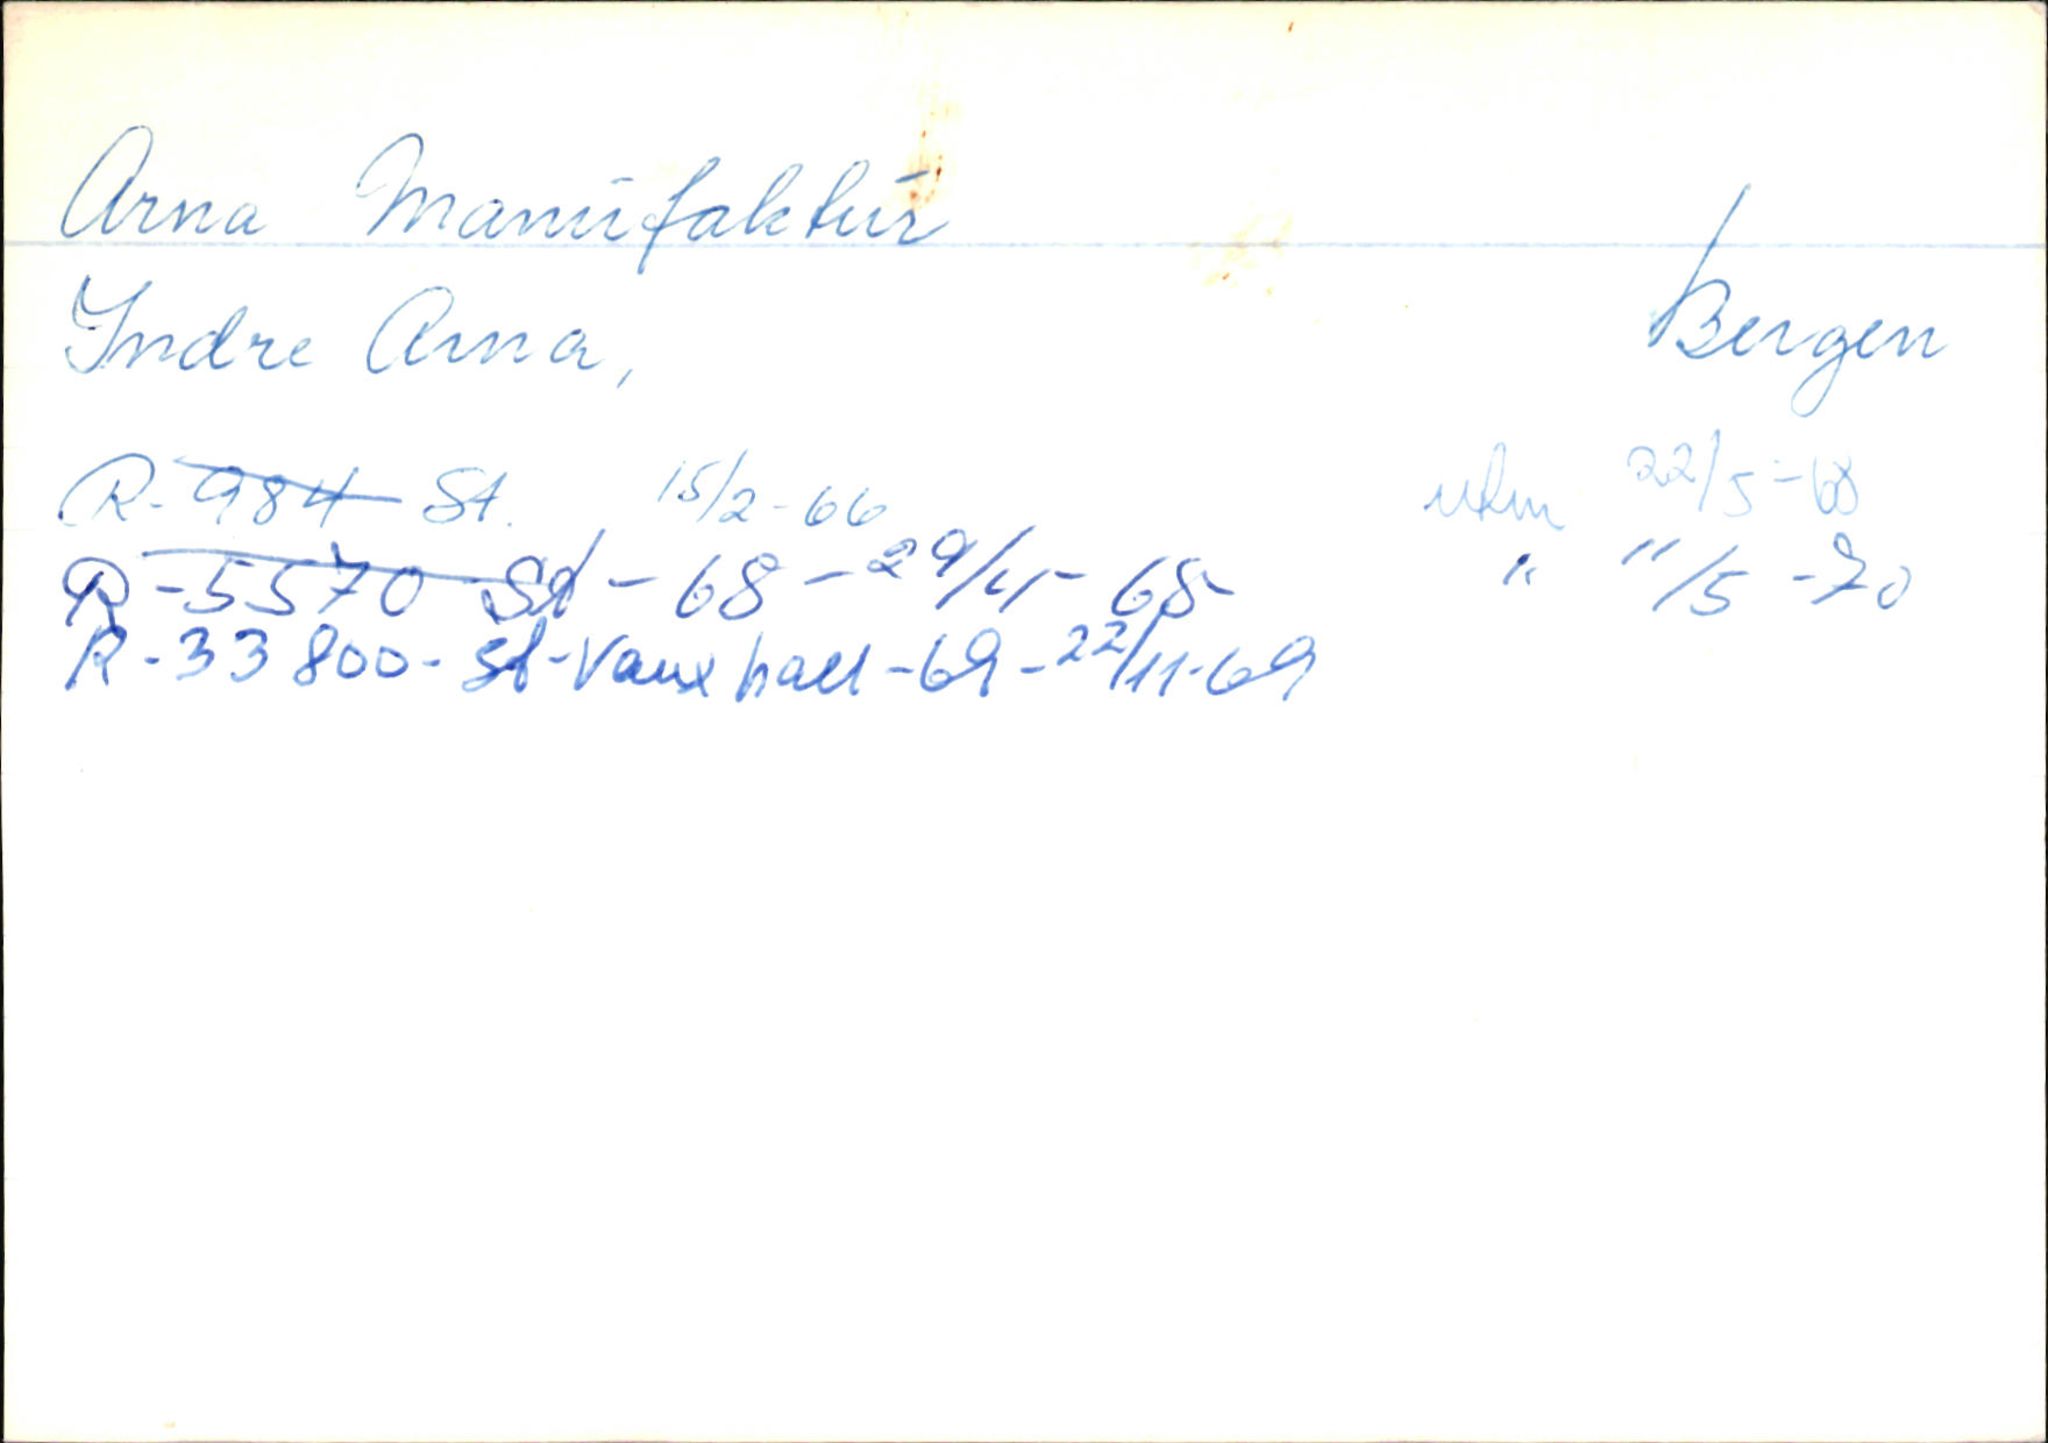 Arna Manufaktur
Indre Arna, Bergen
R-984 St. 15/2-66 utm 22/5-68
R-5570 St - 68 - 29/4- 68 " 11/5-70
R-33800-St-Vauxhall-69-22/11-69